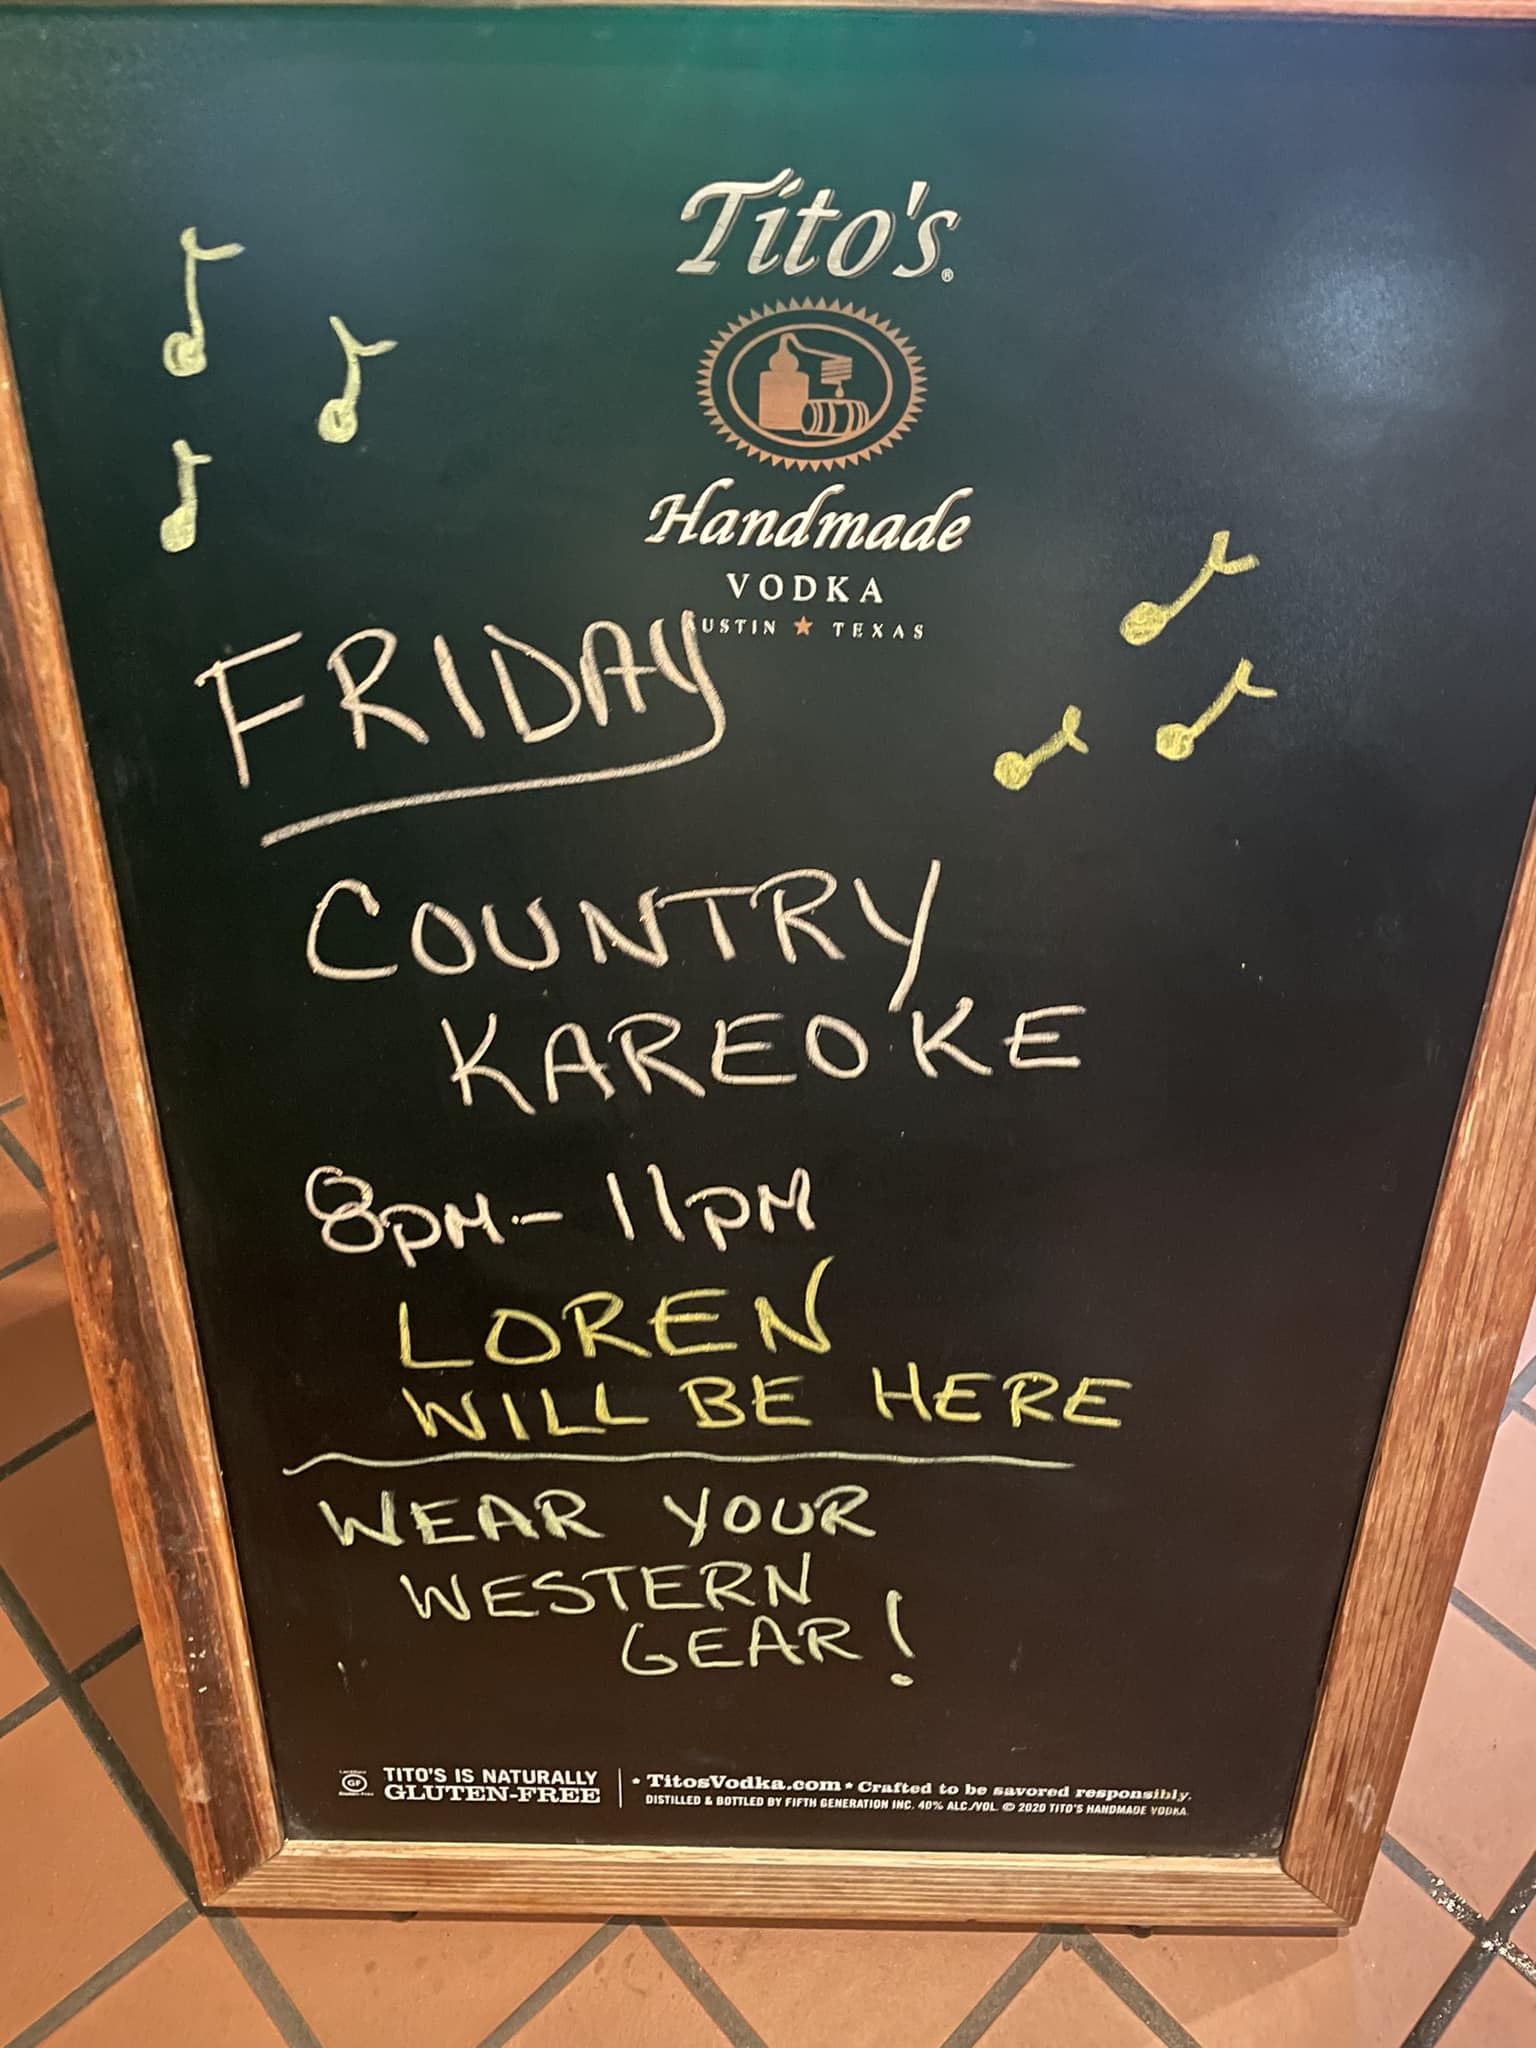 Tito's®
Handmade
VODKA
AUSTIN ★ TEXAS
FRIDAY
COUNTRY
KAREOKE
8PM - 11PM
LOREN
WILL BE HERE
WEAR YOUR
WESTERN
GEAR!
GF
TITO'S IS NATURALLY
GLUTEN-FREE
* TitosVodka.com * Crafted to be savored responsibly.
DISTILLED & BOTTLED BY FIFTH GENERATION INC. 40% ALC./VOL. © 2020 TITO'S HANDMADE VODKA.